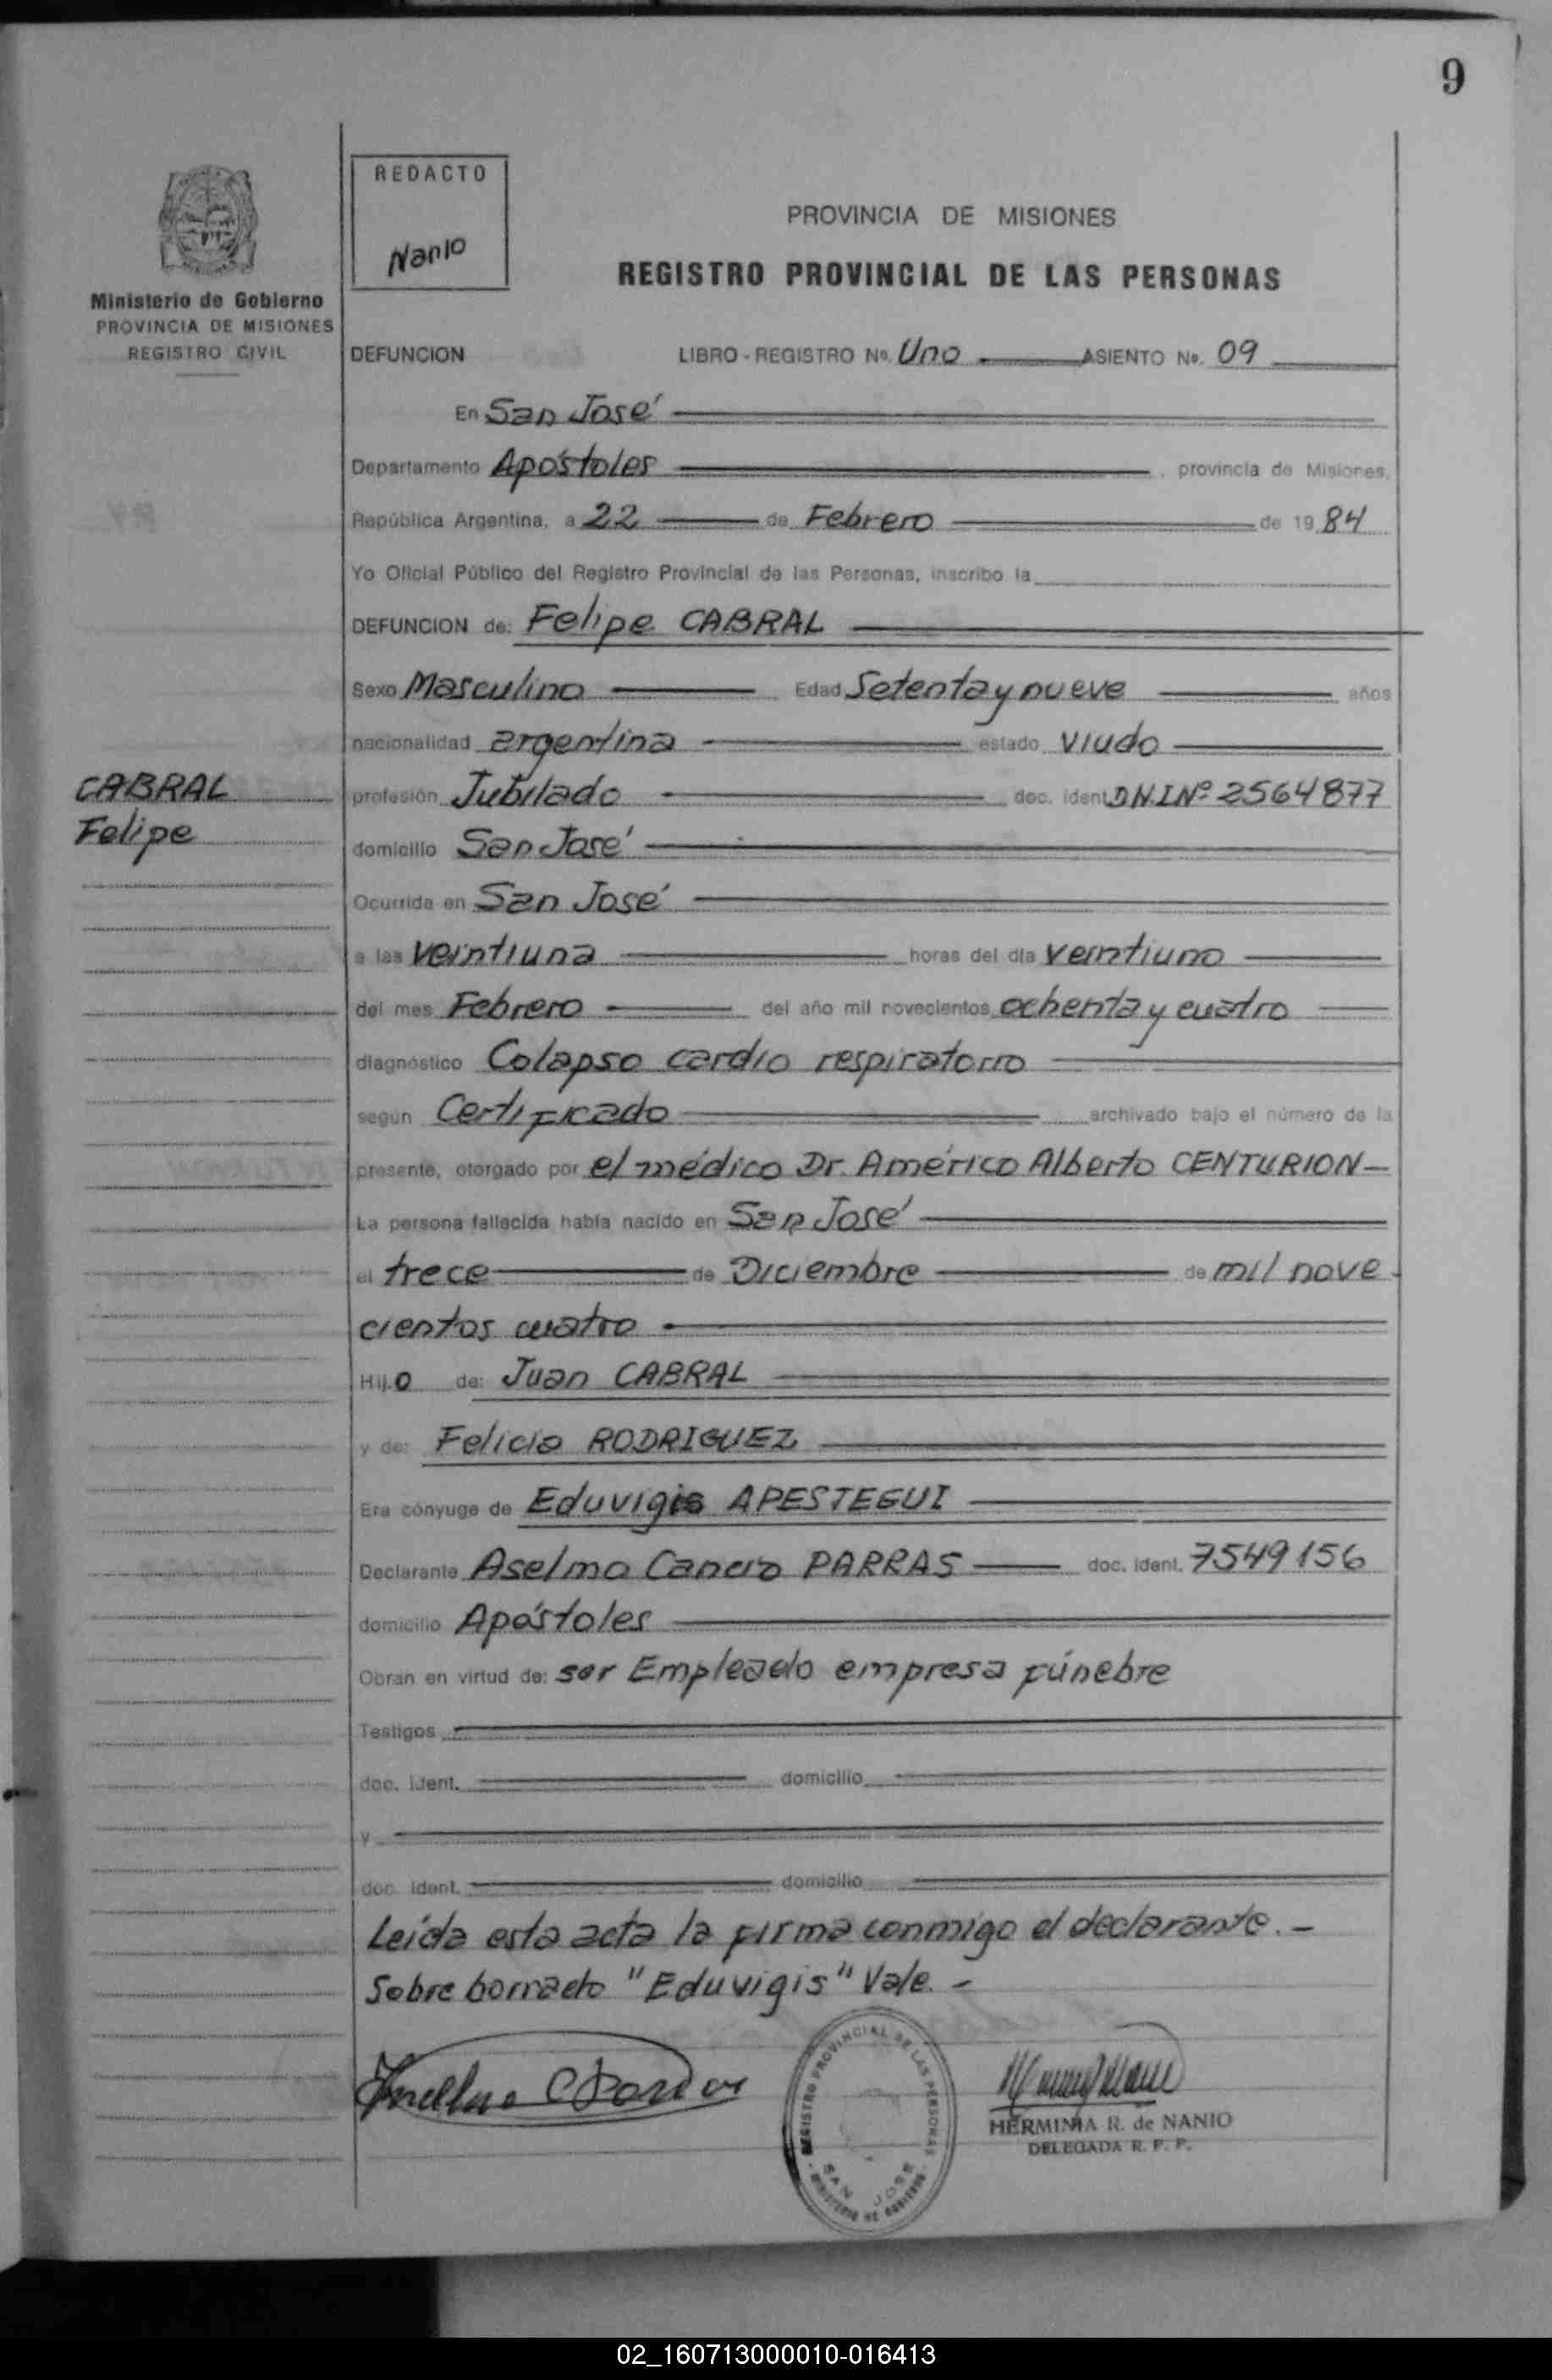 9
REDACTO
Nanio
PROVINCIA DE MISIONES
REGISTRO PROVINCIAL DE LAS PERSONAS
Ministerio de Gobierno
PROVINCIA DE MISIONES
REGISTRO CIVIL
DEFUNCION LIBRO - REGISTRO Nº. Uno ASIENTO Nº. 09
En San José
Departamento Apóstoles , provincia de Misiones,
República Argentina, a 22 de Febrero de 19 84
Yo Oficial Público del Registro Provincial de las Personas, inscribo la
DEFUNCION de: Felipe CABRAL
Sexo Masculino Edad Setenta y nueve años
nacionalidad argentina estado viudo
CABRAL
Felipe
profesión Jubilado doc. ident. D.N.I Nº 2564877
domicilio San José
Ocurrida en San José
a las veintiuna horas del día veintiuno
del mes Febrero del año mil novecientos ochenta y cuatro
diagnóstico Colapso cardio respiratorio
según Certificado archivado bajo el número de la
presente, otorgado por el médico Dr. Américo Alberto CENTURION
La persona fallecida había nacido en San José
el trece de Diciembre de mil nove
cientos cuatro
Hij.o de: Juan CABRAL
y de: Felicia RODRIGUEZ
Era cónyuge de Eduvigis APESTEGUI
Declarante Aselmo PARRAS doc. ident. 7549156
domicilio Apóstoles
Obran en virtud de: ser Empleado empresa fúnebre
Testigos
doc. ident. domicilio
y
doc. ident. domicilio
Leída esta acta la firma conmigo el declarante. -
Sobre borrado "Eduvigis" Vale. -
REGISTRO PROVINCIAL DE LAS PERSONAS
SAN JOSE
MINISTERIO DE GOBIERNO
HERMINIA R. de NANIO
DELEGADA R. P. P.
02_160713000010-016413